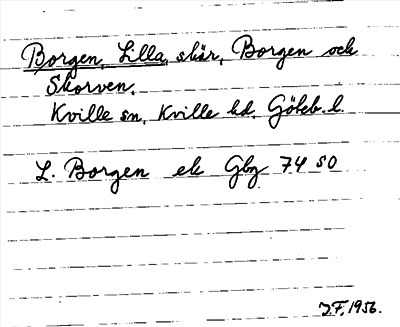 Borgen, Lilla, skär, Borgen och
Skorven.
Kville sn, Kville hd. Göteb. l.
L. Borgen ek Gbg 74 SO
J.F. 1956.